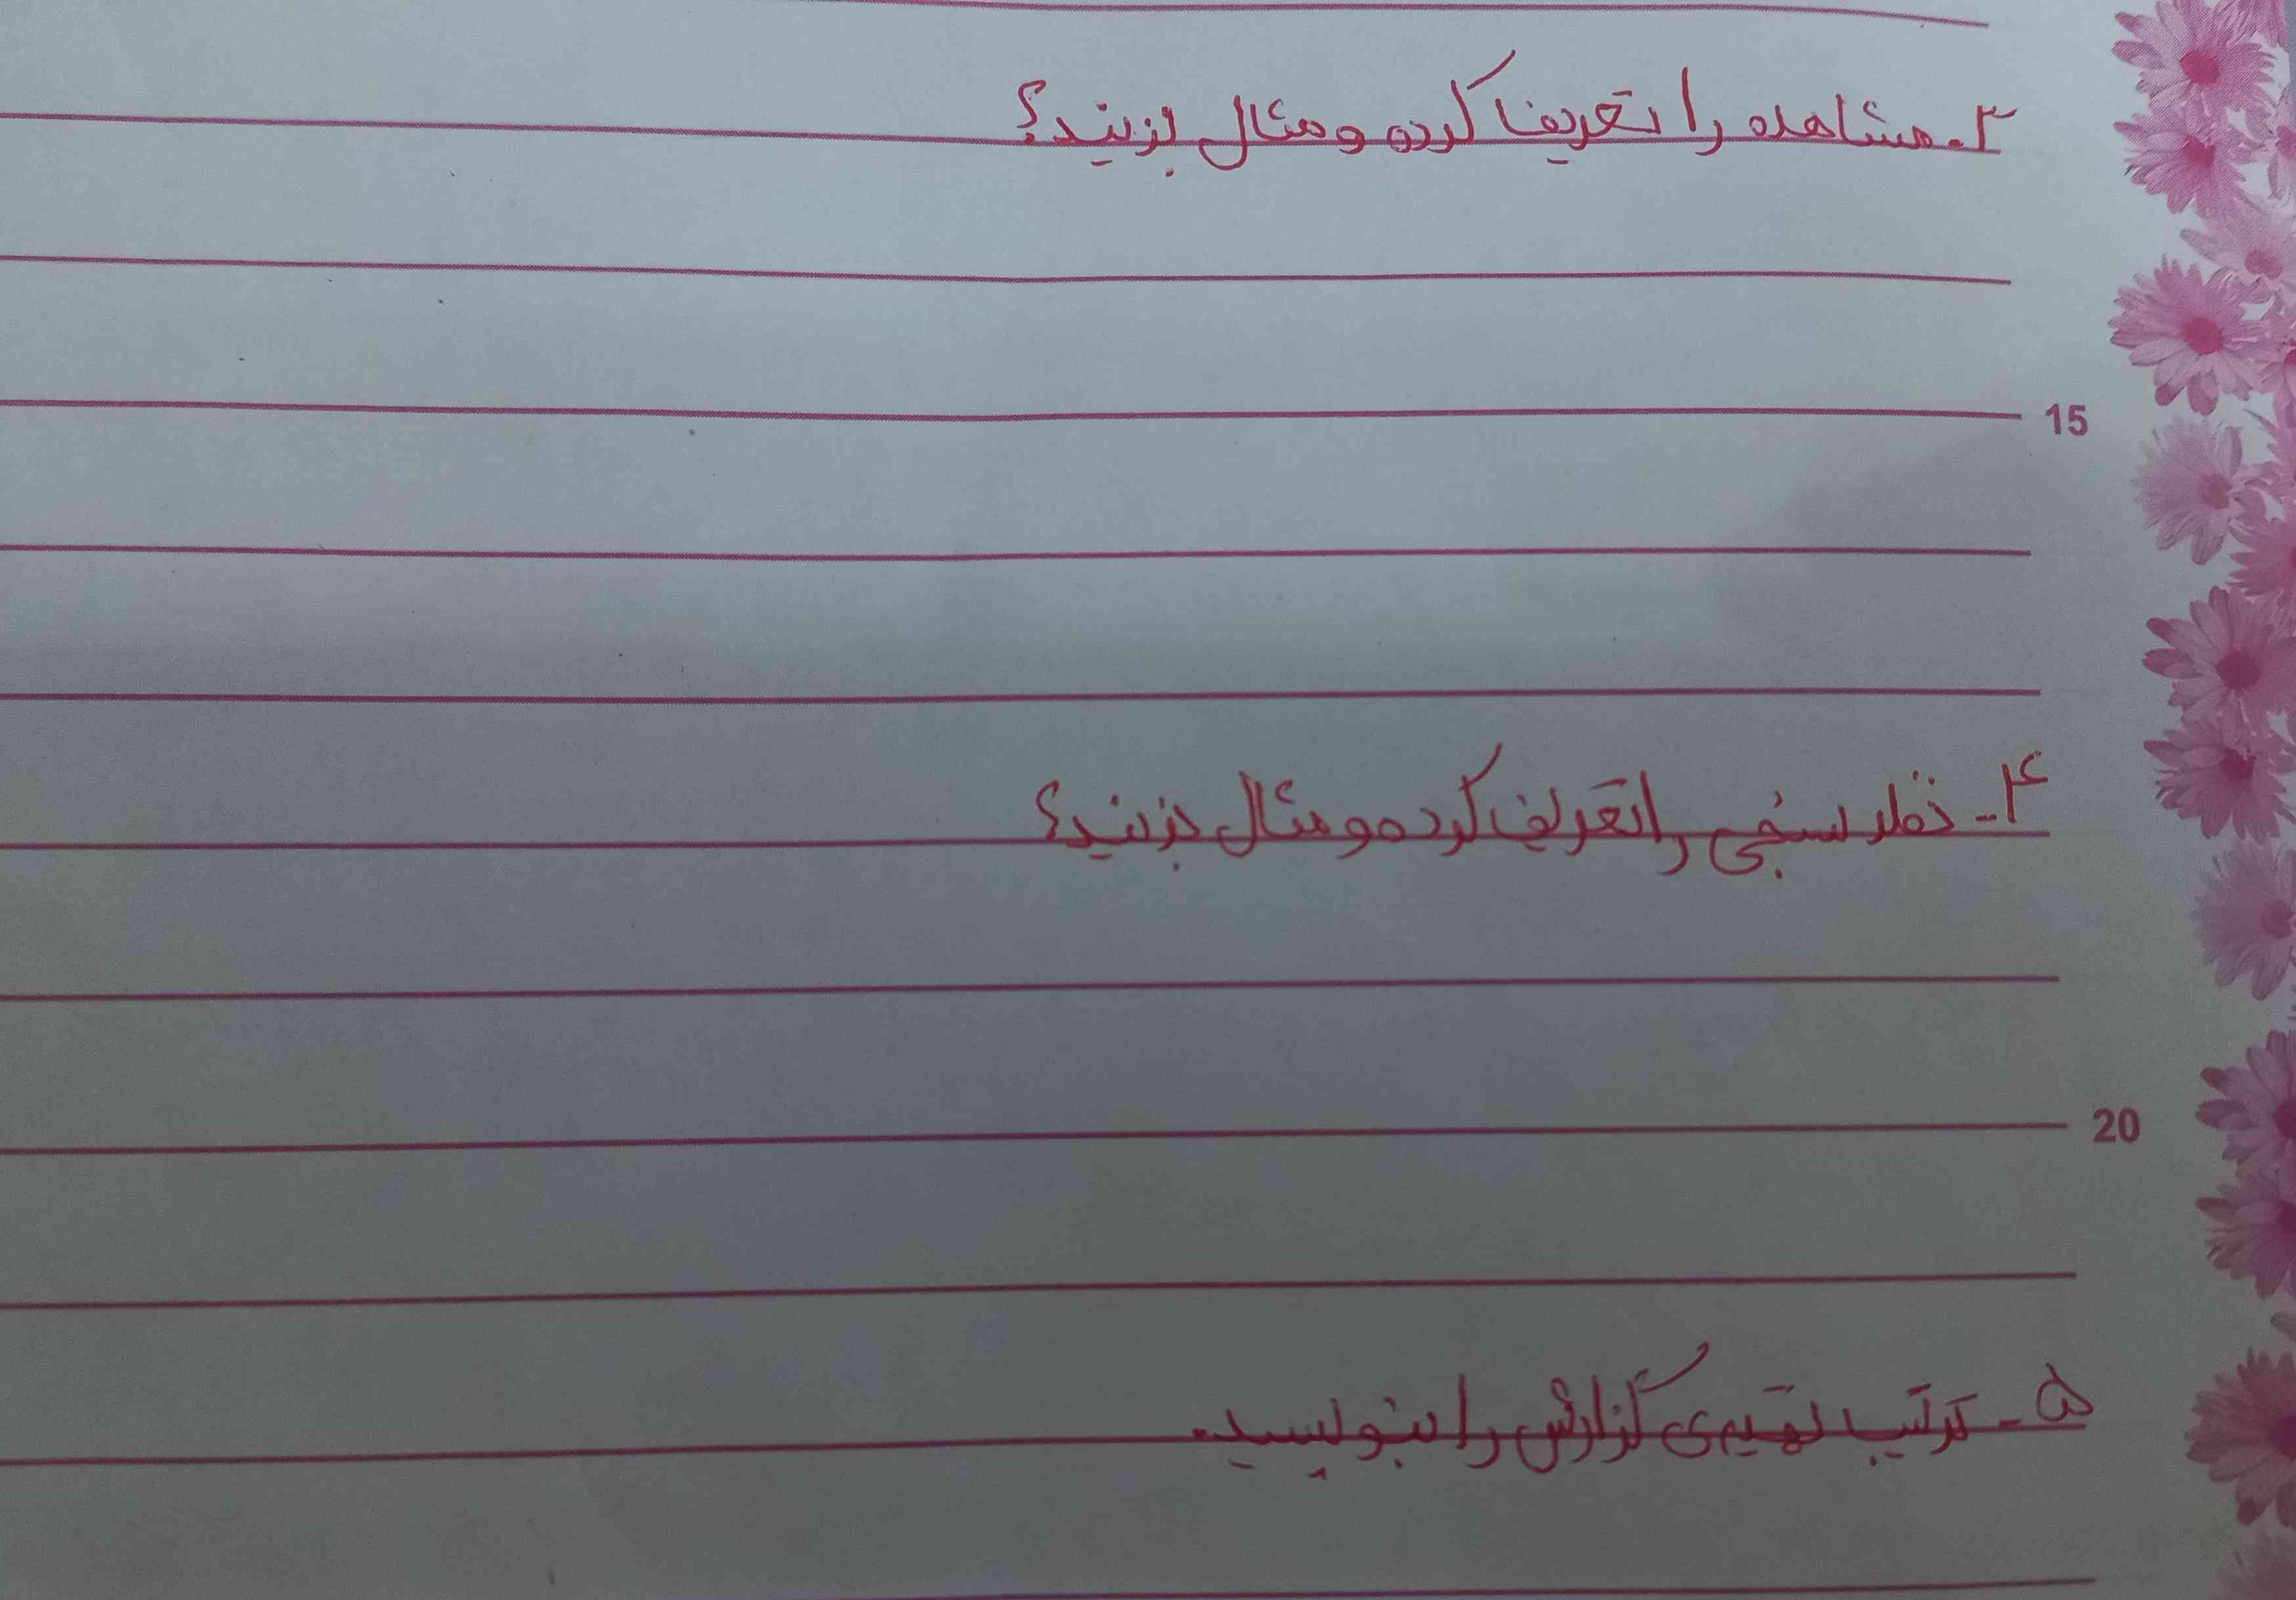 ۳- مشاهده را تعریف کرده و مثال بزنید؟
15
۴- نظر سنجی را تعریف کرده و مثال بزنید؟
20
۵- ترتیب تهیه‌ی گزارش را بنویسید.